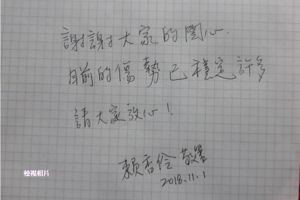 謝謝大家的關心.
目前的傷勢已穩定許多
請大家放心!
賴香伶 敬墨
2018.11.1
檢視相片